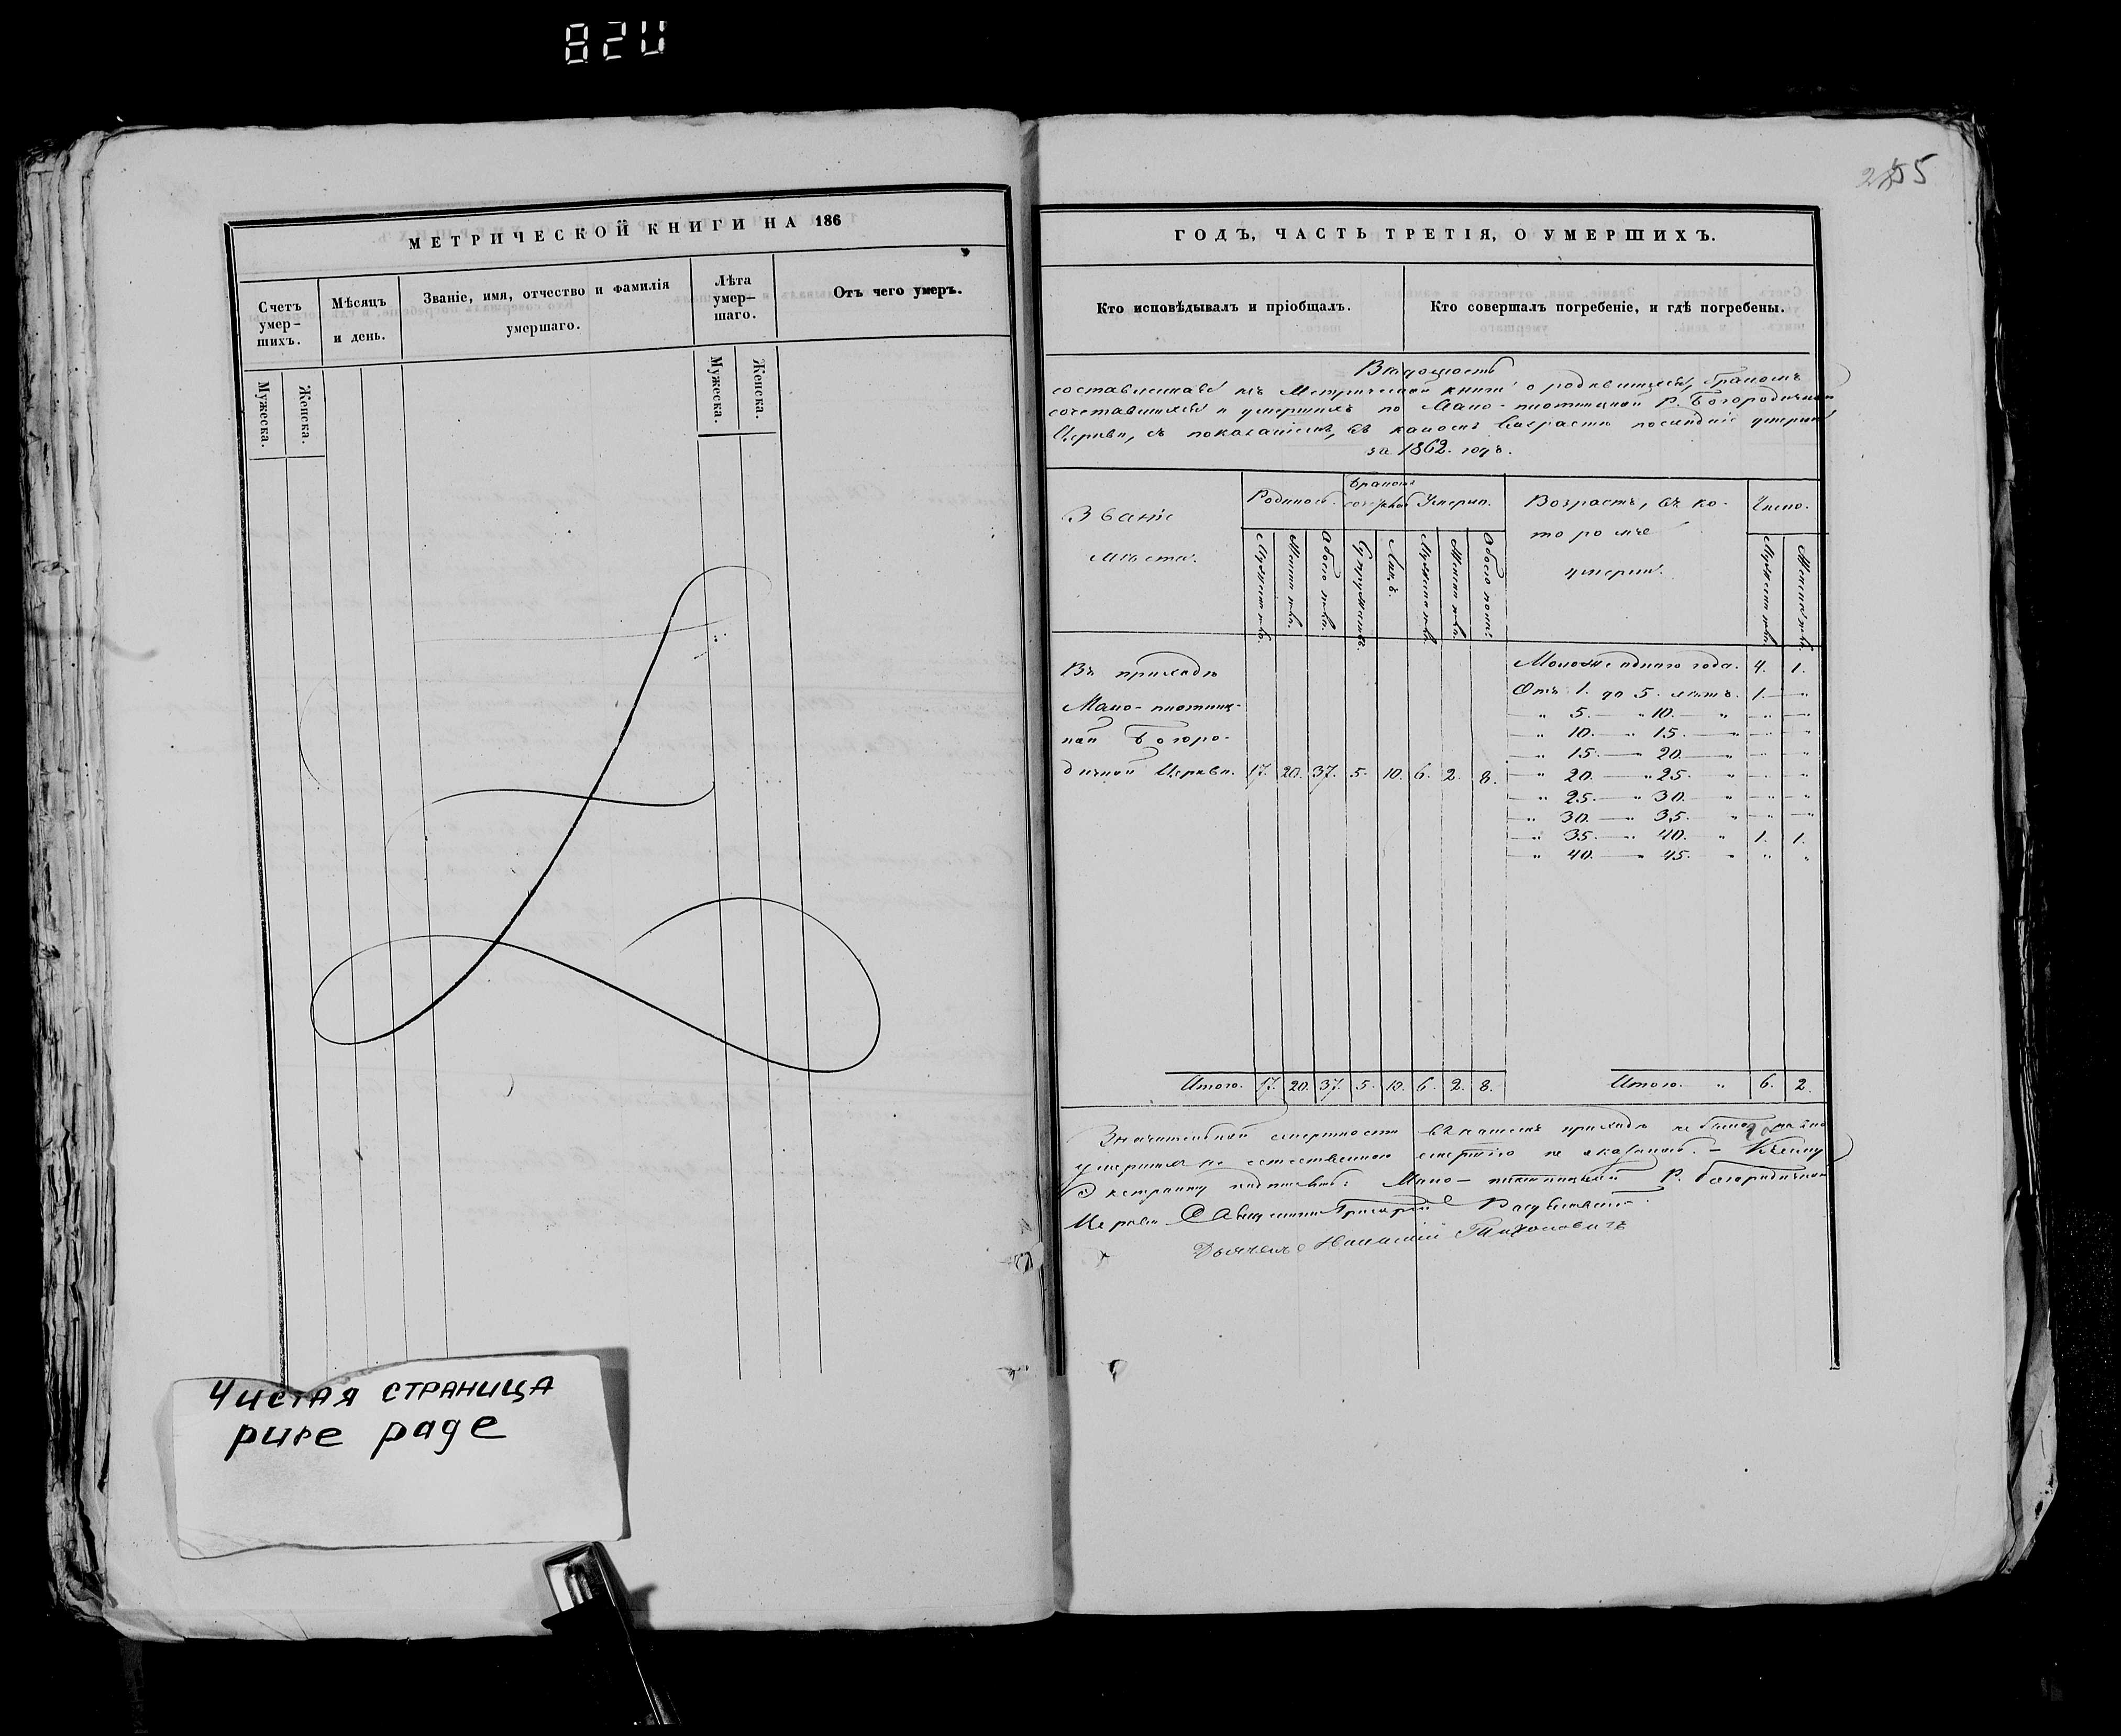 820
МЕТРИЧЕСКОЙ КНИГИ НА 186
Счетъ умер-шихъ.
Мѣсяцъ и день.
Званіе, имя, отчество и фамилія умершаго.
Лѣта умер-шаго.
Отъ чего умеръ.
Мужеска.
Женска.
Мужеска.
Женска.
Чистая страница
pure page
255
ГОДЪ, ЧАСТЬ ТРЕТІЯ, О УМЕРШИХЪ.
Кто исповѣдывалъ и пріобщалъ.
Кто совершалъ погребеніе, и гдѣ погребены.
Вѣдомость
составленная изъ Метрической книги о родившихся, бракомъ
сочетавшихся и умершихъ по Мало-плотницкой Р. Богородичной
Церкви, съ показаніемъ, въ какомъ возрастѣ послѣдніе умерли
за 1862. годъ.
Званіе мѣста.
Родилось.
Бракомъ
Умерли.
Возрастъ, въ ко-
торомъ
умерли.
Число.
Мужеска пола.
Женска пола.
Обоего пола.
Супружествъ.
Лицъ.
Мужеска пола.
Женска пола.
Обоего пола.
Мужеска пола.
Женска пола.
Въ приходѣ
Мало-плотниц-
кой Богоро-
дичной Церкви. 17. 20. 37. 5. 10. 6. 2. 8.
Моложе одного года. 4. 1.
Отъ 1. до 5. лѣтъ. 1. "
" 5. — " 10. — " " "
" 10. — " 15. — " " "
" 15. — " 20. — " " "
" 20. — " 25. — " " "
" 25. — " 30. — " " "
" 30. — " 35. — " " "
" 35. — " 40. — " 1. 1.
" 40. — " 45. — " " "
Итого. 17. 20. 37. 5. 10. 6. 2. 8.
Итого. " 6. 2.
Значительной смертности въ нашемъ приходѣ не было
умершихъ не естественною смертію не оказалось. —
Мало-плотницкой Р. Богородичной
Церкви Священникъ Григорій
Дьячекъ